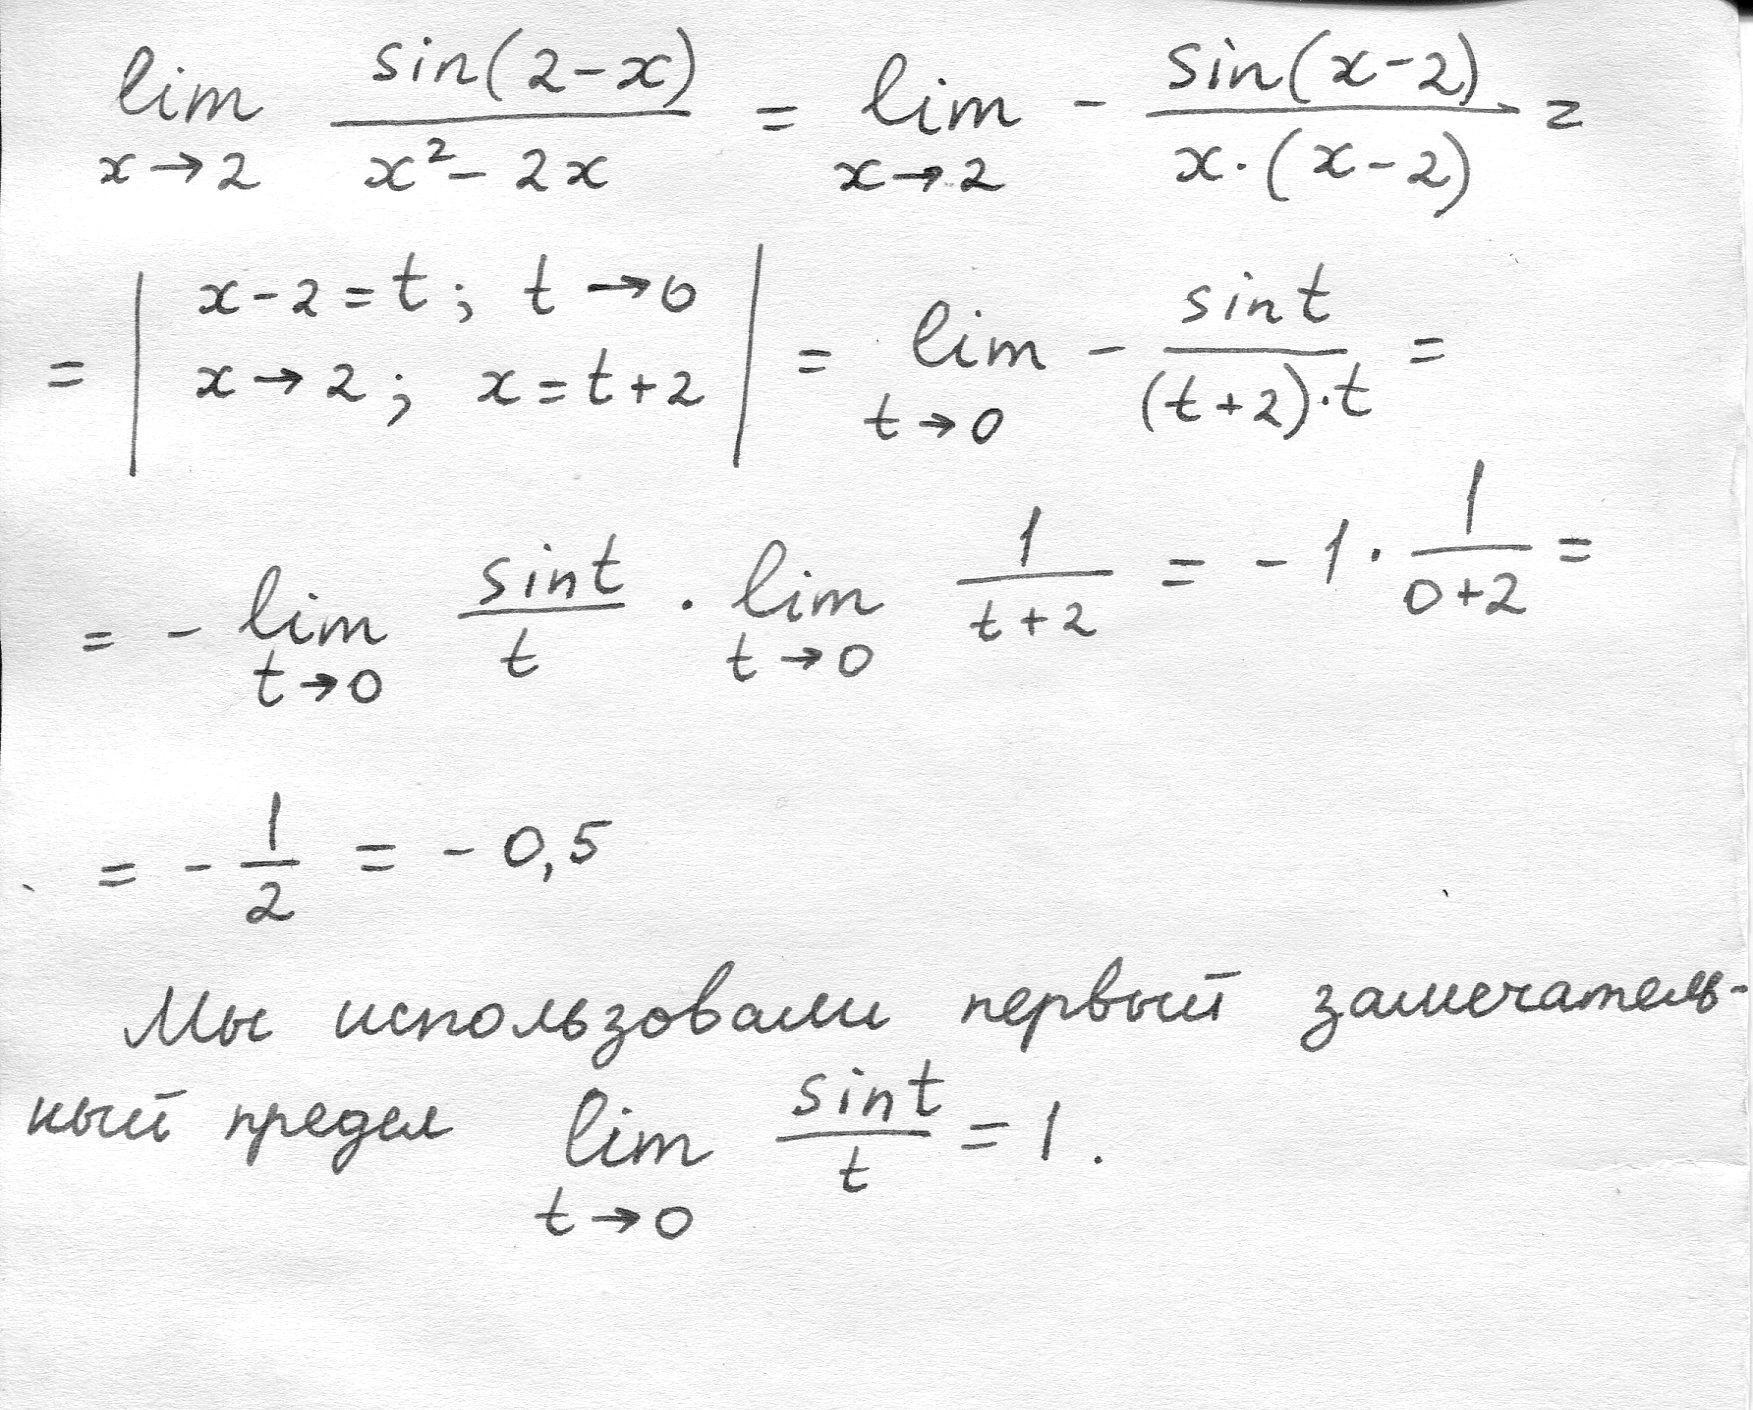 lim x→2 sin(2-x) / x² - 2x = lim x→2 - sin(x-2) / x·(x-2) =
= | x-2=t; t→0
x→2; x=t+2 | = lim t→0 - sin t / (t+2)·t =
= - lim t→0 sin t / t · lim t→0 1 / t+2 = -1 · 1 / 0+2 =
= - 1/2 = - 0,5
Мы использовали первый замечатель-
ный предел lim t→0 sin t / t = 1.